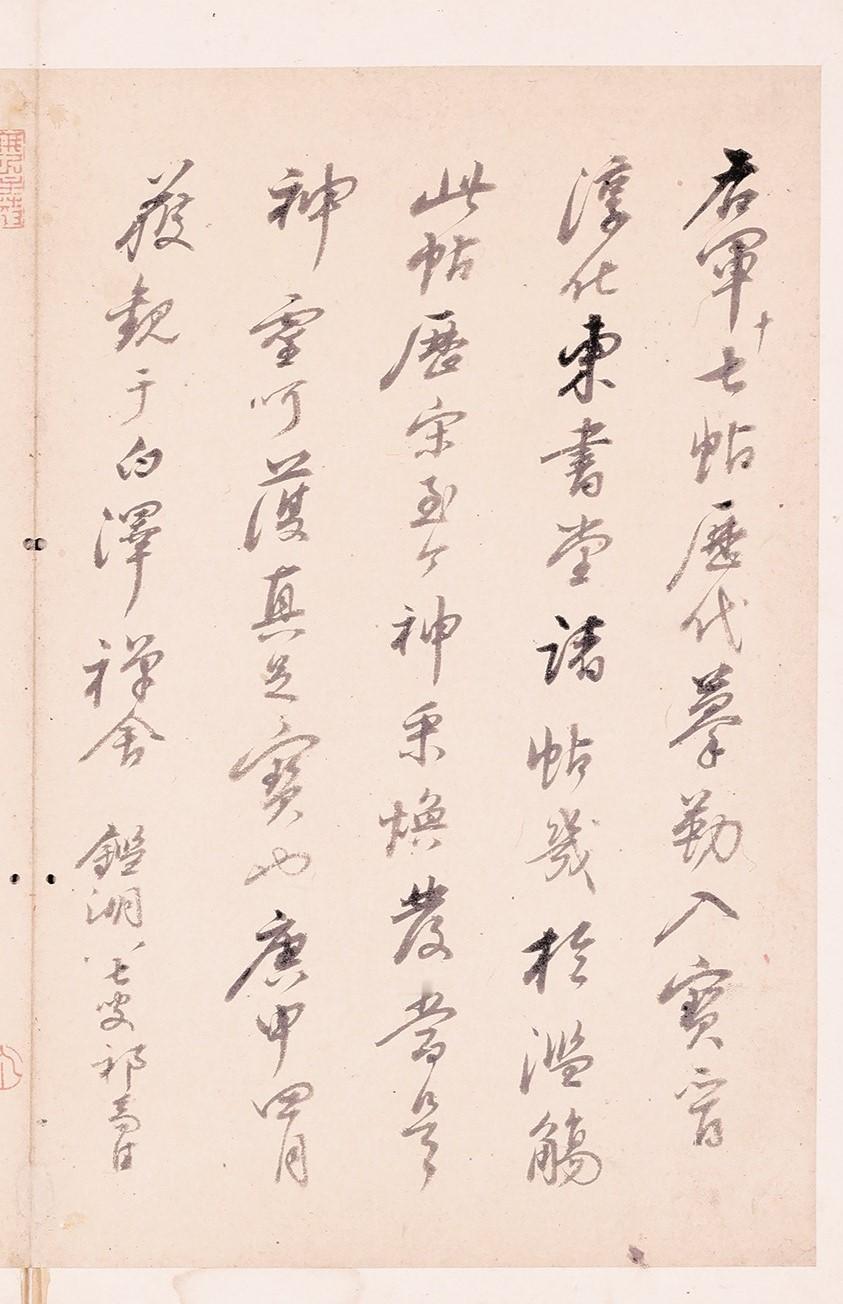 右軍十七帖歷代摹勒入寶晉
淳化東書堂諸帖幾於濫觴
此帖歷宋至今神采煥發當是
神靈呵護真足寶也庚申四月
獲觀于白澤禪舍 鑑湖八七叟祁豸佳